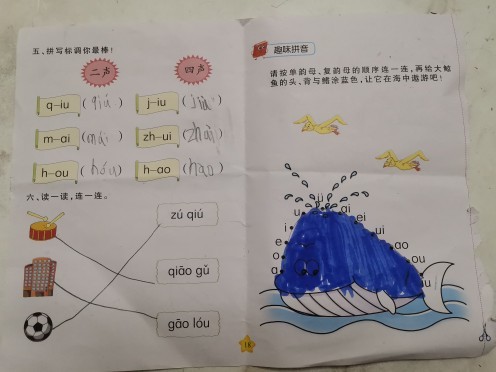 五、拼写标调你最棒！
二声 四声
q-iu (qiú) j-iu (jiù)
m-ai (mái) zh-ui (zhuì)
h-ou (hóu) h-ao (hào)
六、读一读，连一连。
zú qiú
qiāo gǔ
gāo lóu
18
趣味拼音
请按单韵母、复韵母的顺序连一连，再给大鲸
鱼的头、背与鳍涂蓝色，让它在海中遨游吧！
ü ai
u ei
i ui
e ao
o ou
a iu